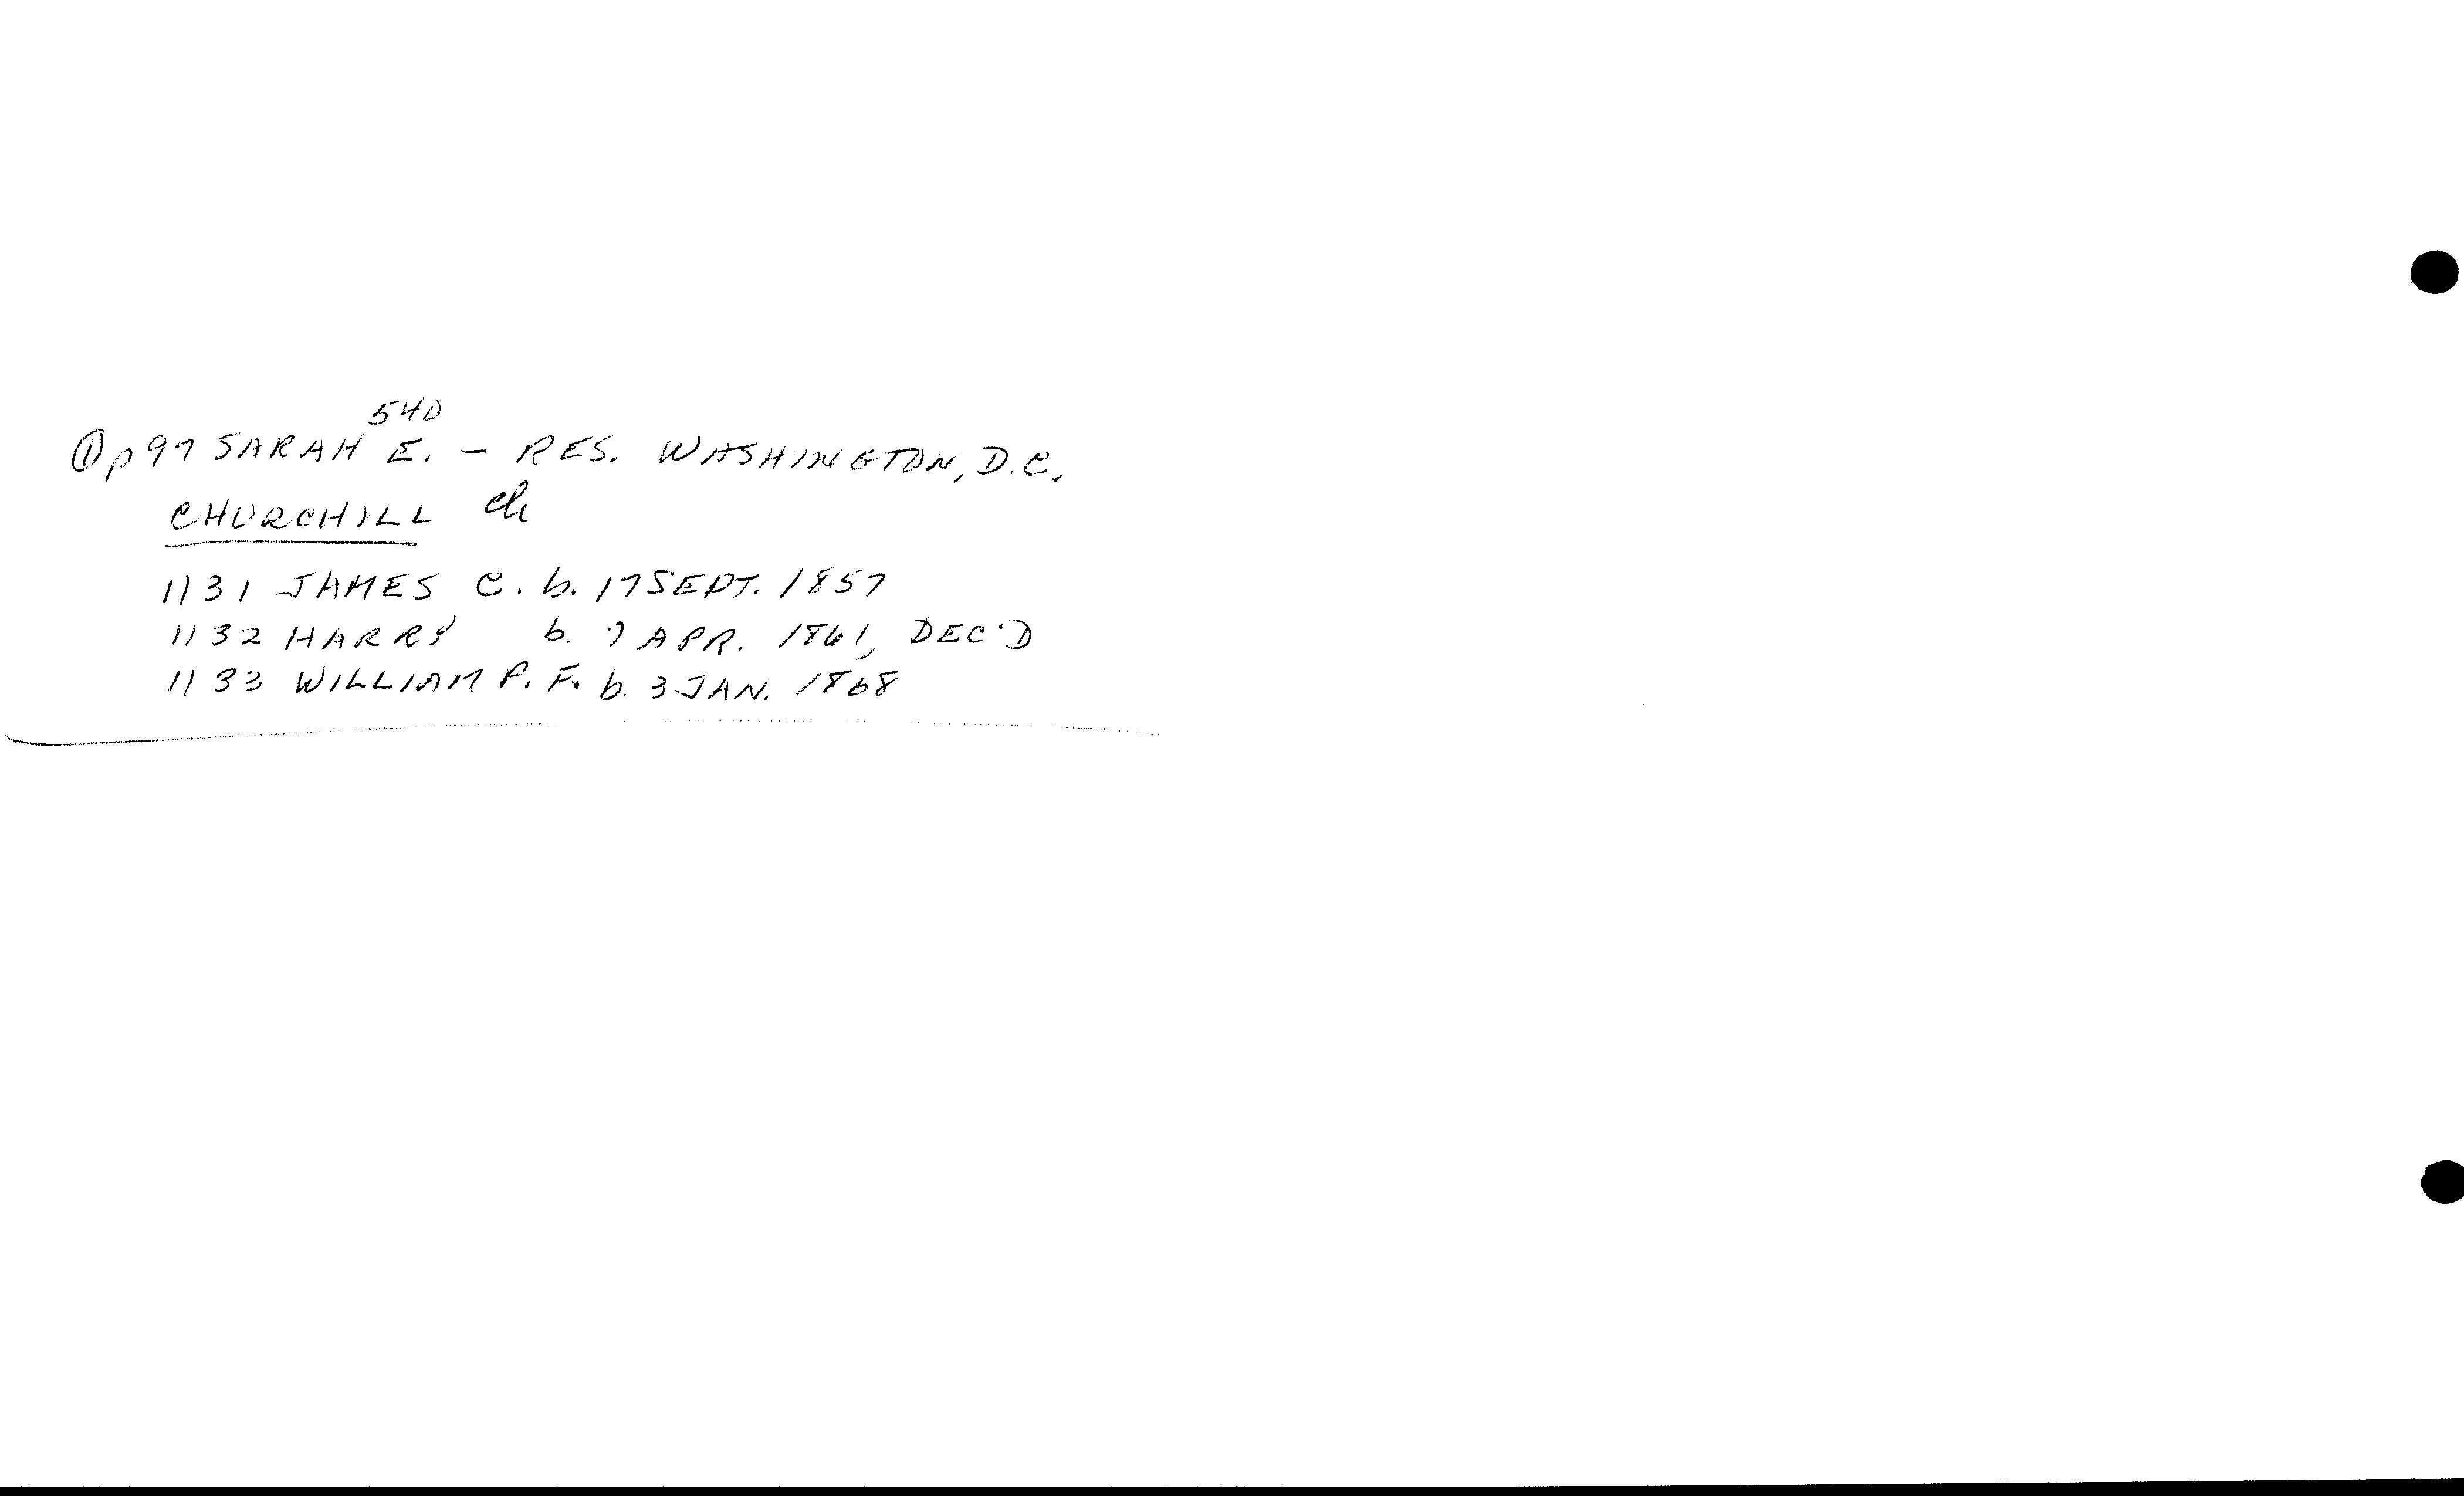 540
① p 97 SARAH E. – RES. WASHINGTON, D.C.
CHURCHILL ch
1131 JAMES C. b. 17 SEPT. 1857
1132 HARRY b. 7 APR. 1861, DEC'D
1133 WILLIAM P. F. b. 3 JAN. 1868